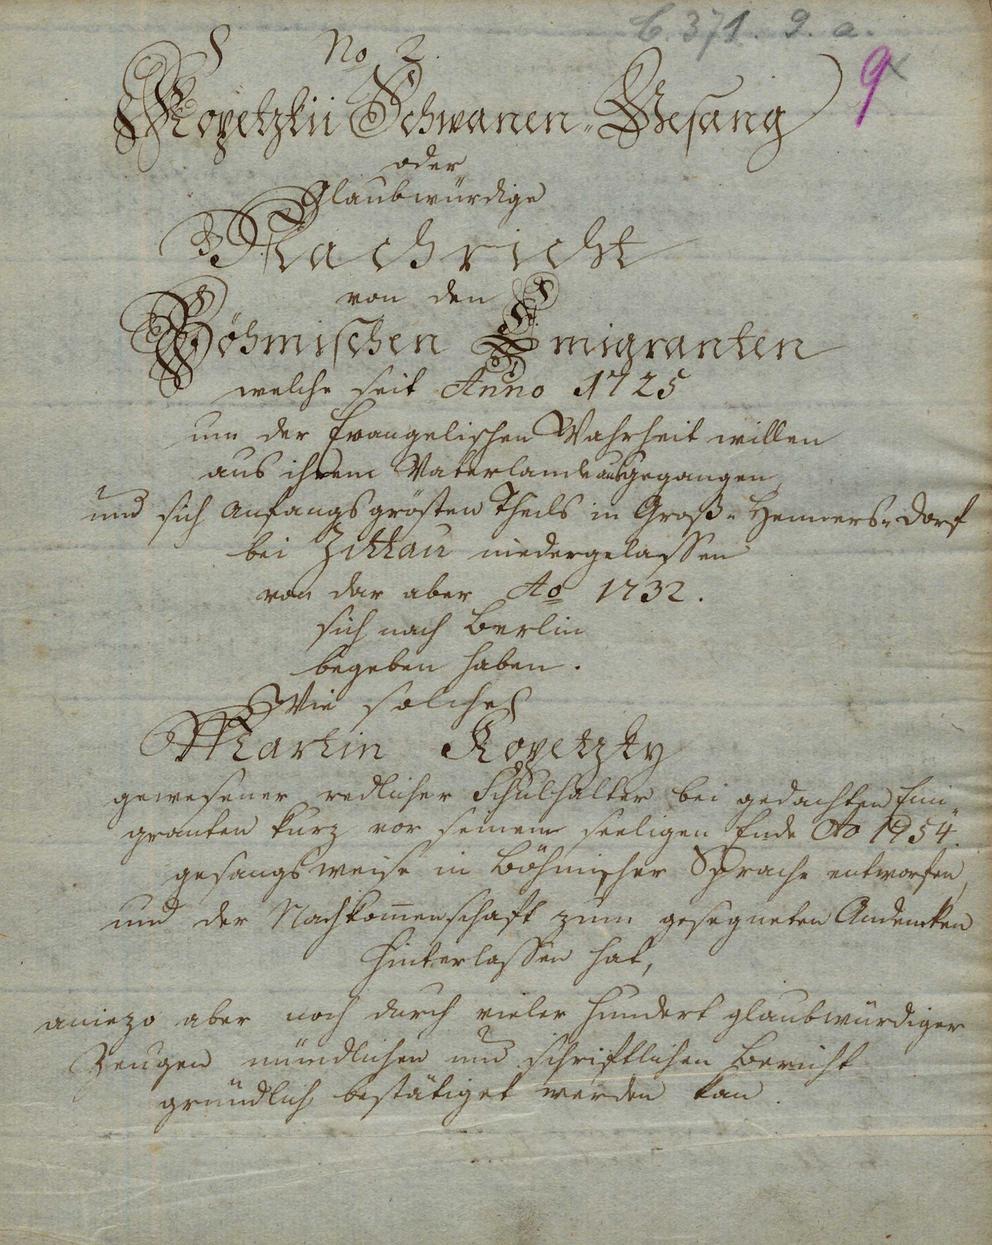 C. 371. 9. a.
No 2.
9
Kopetzkii Schwanen-Gesang
oder
Glaubwürdige
Nachricht
von den
Böhmischen Emigranten
welche seit Anno 1725
um der Evangelischen Wahrheit willen
aus ihrem Vaterlande ausgegangen,
und sich Anfangs grösten Theils in Groß-Hennersdorf
bei Zittau niedergelassen
von dar aber Ao 1732.
sich nach Berlin
begeben haben.
Wie solches
Martin Kopetzky
gewesener redlicher Schulhalter bei gedachten Emi-
granten kurz vor seinem seeligen Ende Ao 1754.
gesangsweise in Böhmischer Sprache entworfen,
und der Nachkom̄enschaft zum gesegneten Andencken
hinterlassen hat,
aniezo aber noch durch vieler hundert glaubwürdiger
Zeugen mündlichen und schriftlichen Bericht
gründlich bestätiget werden kan.